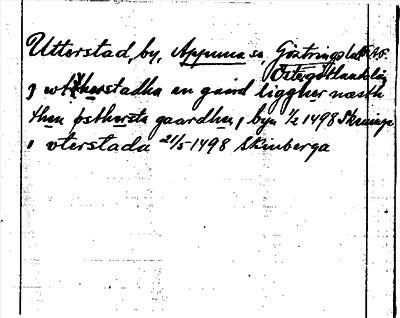 Utterstad, by, Appuna sn, Göstrings hd
Östergötlands län
j wttherstadha en gaard liggher næsth
then østhersta gaardhen j byn 1/2 1498 Skeninge
i vterstada 21/5 1498 Skinberga